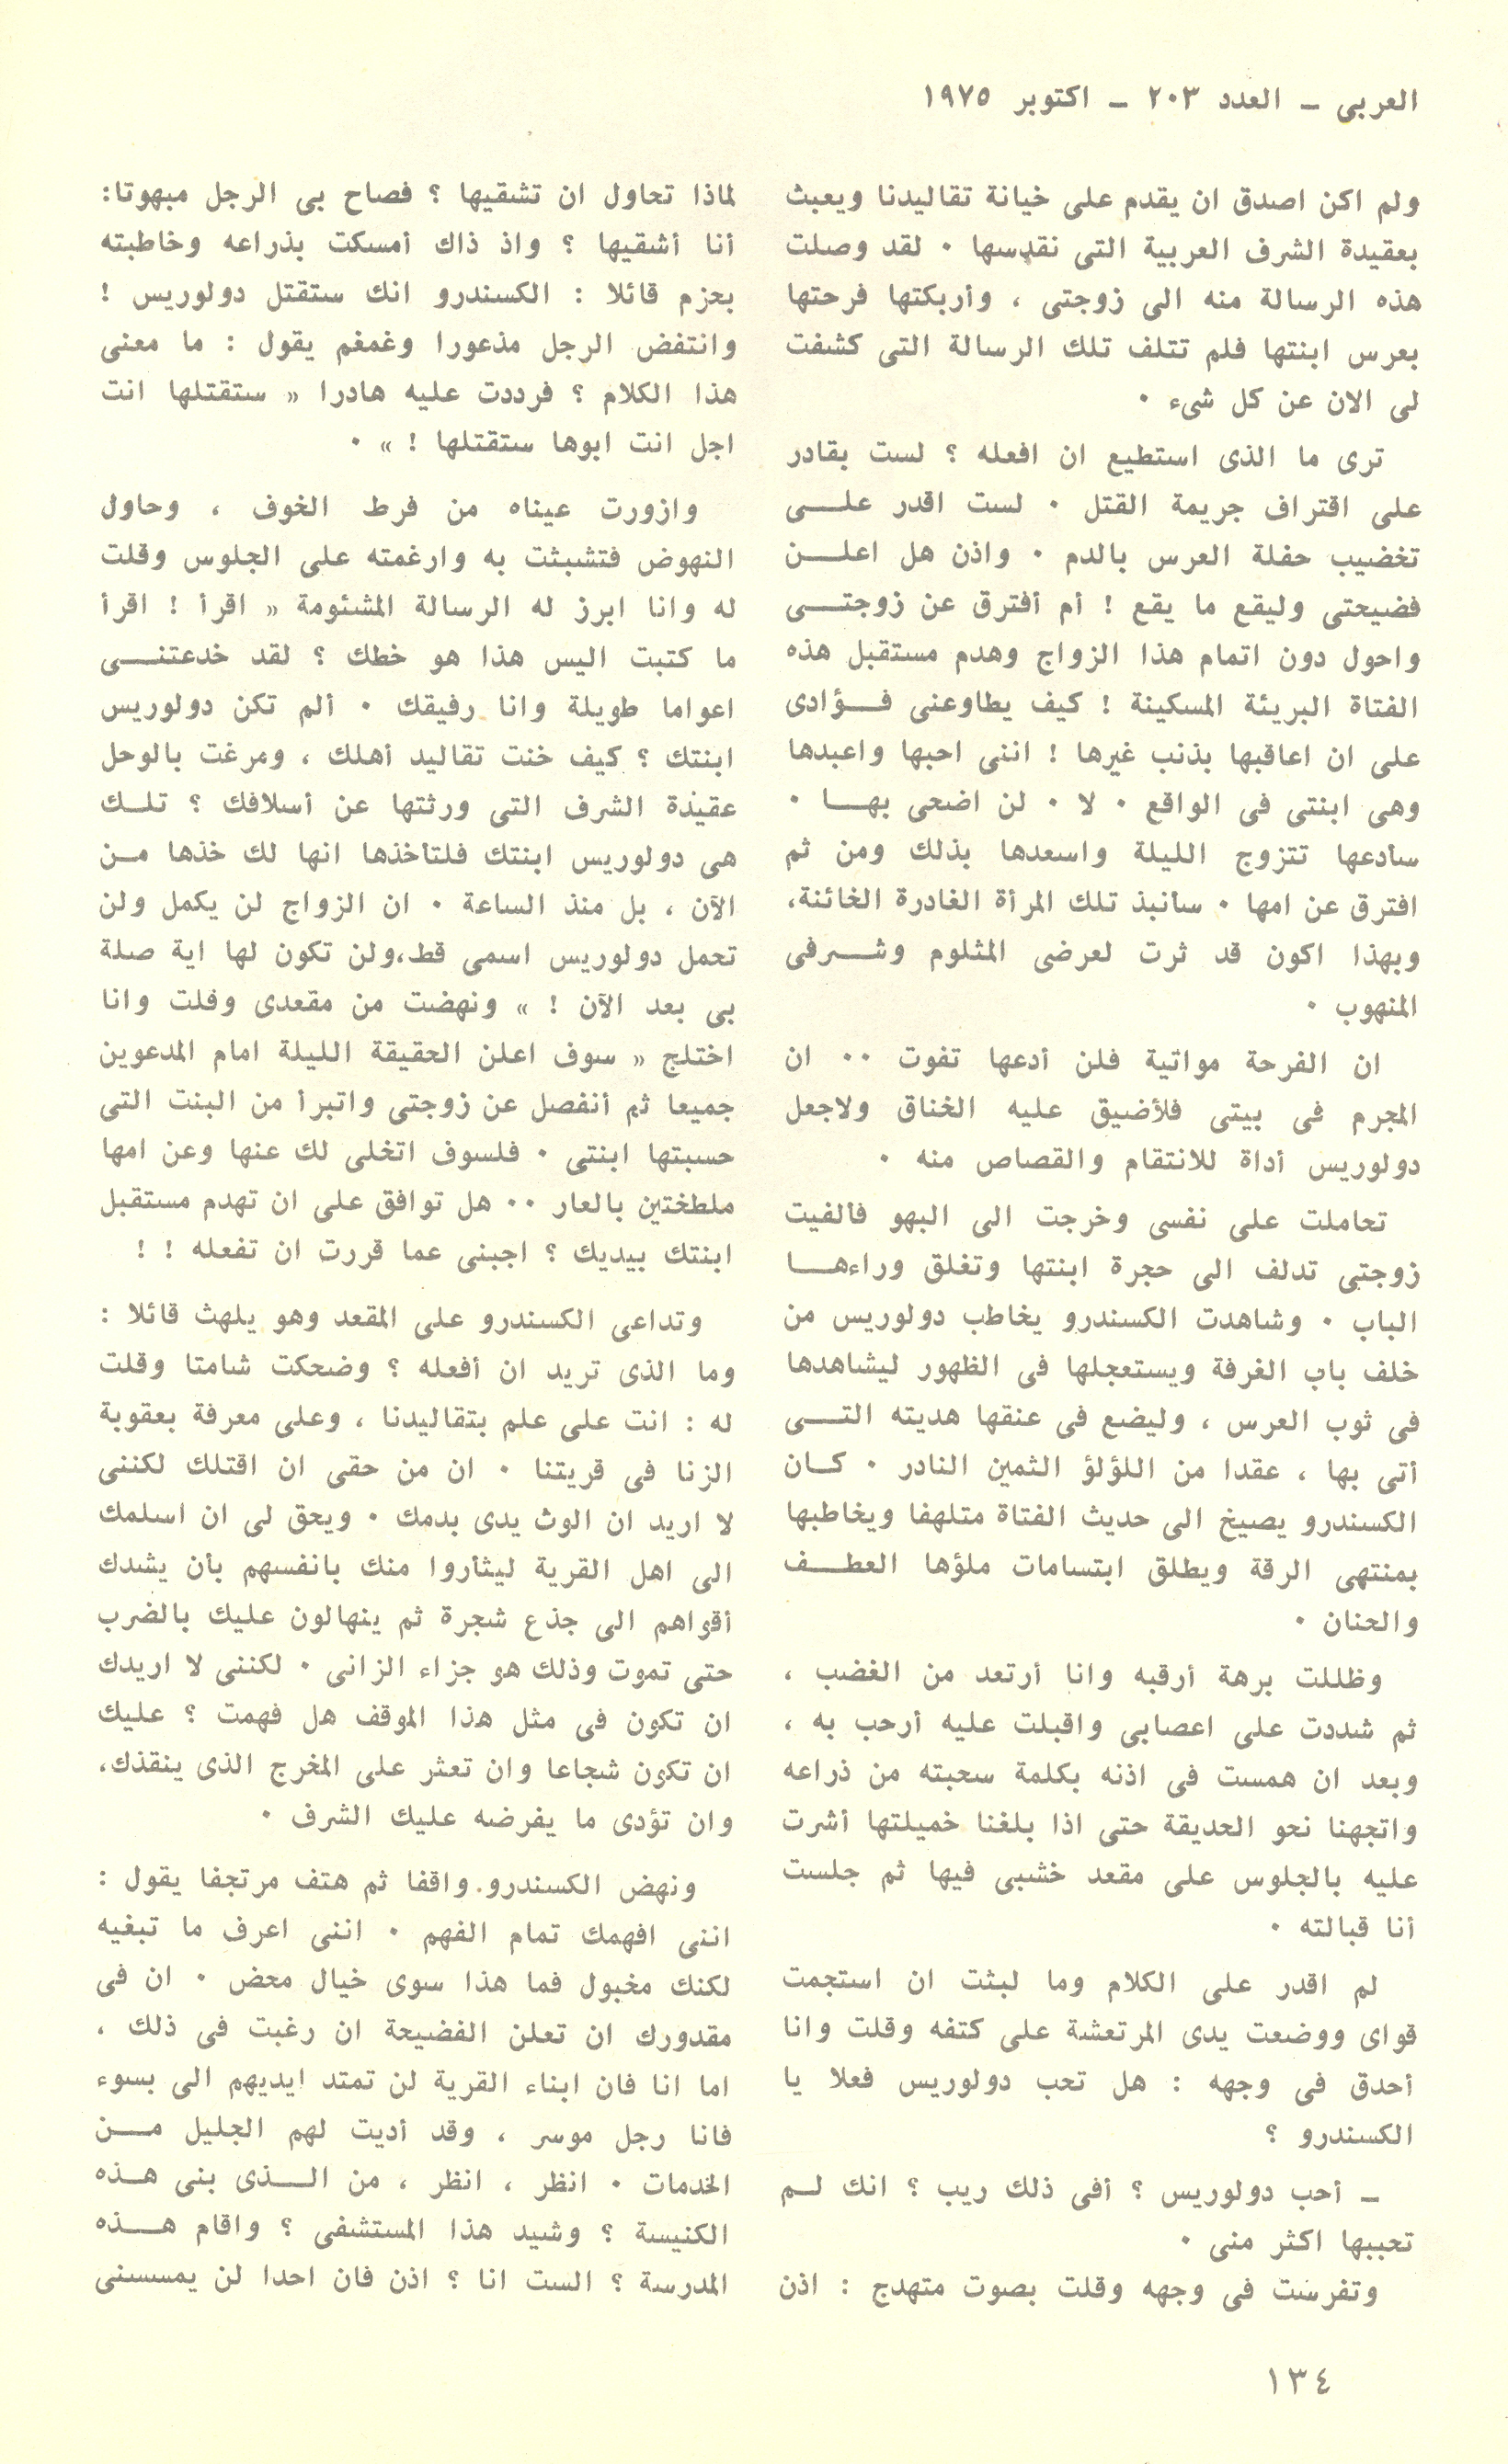 العربى ـ العدد ٢٠٣ ـ اكتوبر ١٩٧٥
ولم اكن اصدق ان يقدم على خيانة تقاليدنا ويعبث
بعقيدة الشرف العربية التى نقدسها ٠ لقد وصلت
هذه الرسالة منه الى زوجتى ، وأربكتها فرحتها
بعرس ابنتها فلم تتلف تلك الرسالة التى كشفت
لى الان عن كل شىء ٠
ترى ما الذى استطيع ان افعله ؟ لست بقادر
على اقتراف جريمة القتل ٠ لست اقدر علـــى
تخضيب حفلة العرس بالدم ٠ واذن هل اعلـــن
فضيحتى وليقع ما يقع ! أم أفترق عن زوجتـــى
واحول دون اتمام هذا الزواج وهدم مستقبل هذه
الفتاة البريئة المسكينة ! كيف يطاوعنى فـــؤادى
على ان اعاقبها بذنب غيرها ! اننى احبها واعبدها
وهى ابنتى فى الواقع ٠ لا ٠ لن اضحى بهـــا ٠
سأدعها تتزوج الليلة واسعدها بذلك ومن ثم
افترق عن امها ٠ سأنبذ تلك المرأة الغادرة الخائنة،
وبهذا اكون قد ثرت لعرضى المثلوم وشـــرفى
المنهوب ٠
ان الفرحة مواتية فلن أدعها تفوت ٠٠ ان
المجرم فى بيتى فلأضيق عليه الخناق ولاجعل
دولوريس أداة للانتقام والقصاص منه ٠
تحاملت على نفسى وخرجت الى البهو فألفيت
زوجتى تدلف الى حجرة ابنتها وتغلق وراءهـــا
الباب ٠ وشاهدت الكسندرو يخاطب دولوريس من
خلف باب الغرفة ويستعجلها فى الظهور ليشاهدها
فى ثوب العرس ، وليضع فى عنقها هديته التـــى
أتى بها ، عقدا من اللؤلؤ الثمين النادر ٠ كــان
الكسندرو يصيخ الى حديث الفتاة متلهفا ويخاطبها
بمنتهى الرقة ويطلق ابتسامات ملؤها العطـــف
والحنان ٠
وظللت برهة أرقبه وانا أرتعد من الغضب ،
ثم شددت على اعصابى واقبلت عليه أرحب به ،
وبعد ان همست فى اذنه بكلمة سحبته من ذراعه
واتجهنا نحو الحديقة حتى اذا بلغنا خميلتها أشرت
عليه بالجلوس على مقعد خشبى فيها ثم جلست
أنا قبالته ٠
لم اقدر على الكلام وما لبثت ان استجمت
قواى ووضعت يدى المرتعشة على كتفه وقلت وانا
أحدق فى وجهه : هل تحب دولوريس فعلا يا
الكسندرو ؟
ـ أحب دولوريس ؟ أفى ذلك ريب ؟ انك لــم
تحببها اكثر منى ٠
وتفرست فى وجهه وقلت بصوت متهدج : اذن
لماذا تحاول ان تشقيها ؟ فصاح بى الرجل مبهوتا:
أنا أشقيها ؟ واذ ذاك أمسكت بذراعه وخاطبته
بحزم قائلا : الكسندرو انك ستقتل دولوريس !
وانتفض الرجل مذعورا وغمغم يقول : ما معنى
هذا الكلام ؟ فرددت عليه هادرا « ستقتلها انت
اجل انت ابوها ستقتلها ! » ٠
وازورت عيناه من فرط الخوف ، وحاول
النهوض فتشبثت به وارغمته على الجلوس وقلت
له وانا ابرز له الرسالة المشئومة « اقرأ ! اقرأ
ما كتبت اليس هذا هو خطك ؟ لقد خدعتنـــى
اعواما طويلة وانا رفيقك ٠ ألم تكن دولوريس
ابنتك ؟ كيف خنت تقاليد أهلك ، ومرغت بالوحل
عقيدة الشرف التى ورثتها عن أسلافك ؟ تلــك
هى دولوريس ابنتك فلتأخذها انها لك خذها مــن
الآن ، بل منذ الساعة ٠ ان الزواج لن يكمل ولن
تحمل دولوريس اسمى قط،ولن تكون لها اية صلة
بى بعد الآن ! » ونهضت من مقعدى وقلت وانا
اختلج « سوف اعلن الحقيقة الليلة امام المدعوين
جميعا ثم أنفصل عن زوجتى واتبرأ من البنت التى
حسبتها ابنتى ٠ فلسوف اتخلى لك عنها وعن امها
ملطختين بالعار ٠٠ هل توافق على ان تهدم مستقبل
ابنتك بيديك ؟ اجبنى عما قررت ان تفعله ! !
وتداعى الكسندرو على المقعد وهو يلهث قائلا :
وما الذى تريد ان أفعله ؟ وضحكت شامتا وقلت
له : انت على علم بتقاليدنا ، وعلى معرفة بعقوبة
الزنا فى قريتنا ٠ ان من حقى ان اقتلك لكننى
لا اريد ان الوث يدى بدمك ٠ ويحق لى ان اسلمك
الى اهل القرية ليثأروا منك بانفسهم بأن يشدك
أقواهم الى جذع شجرة ثم ينهالون عليك بالضرب
حتى تموت وذلك هو جزاء الزانى ٠ لكننى لا اريدك
ان تكون فى مثل هذا الموقف هل فهمت ؟ عليك
ان تكون شجاعا وان تعثر على المخرج الذى ينقذك،
وان تؤدى ما يفرضه عليك الشرف ٠
ونهض الكسندرو واقفا ثم هتف مرتجفا يقول :
اننى افهمك تمام الفهم ٠ اننى اعرف ما تبغيه
لكنك مخبول فما هذا سوى خيال محض ٠ ان فى
مقدورك ان تعلن الفضيحة ان رغبت فى ذلك ،
اما انا فان ابناء القرية لن تمتد ايديهم الى بسوء
فانا رجل موسر ، وقد أديت لهم الجليل مــن
الخدمات ٠ انظر ، انظر ، من الــذى بنى هــذه
الكنيسة ؟ وشيد هذا المستشفى ؟ واقام هـــذه
المدرسة ؟ الست انا ؟ اذن فان احدا لن يمسسنى
١٣٤